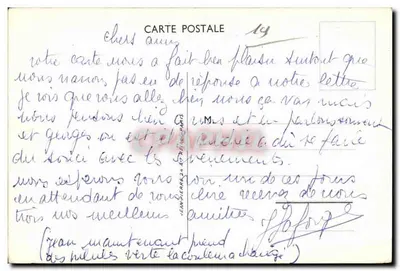 CARTE POSTALE
19
chers amis
votre carte nous a fait bien plaisir surtout que
nous navions pas eu de réponse a notre lettre
je vois que vous allez bien nous ça va mais
nous pendons bien a vous et en parlons souvent
M.
et georges on est
du souci avec les evenements
nous esperons vous voir un de ces jours
en attendant de vous lire recevez de nous
trois nos meilleures amities
(jean maintenant prend
des pilules verte la couleur a changé)